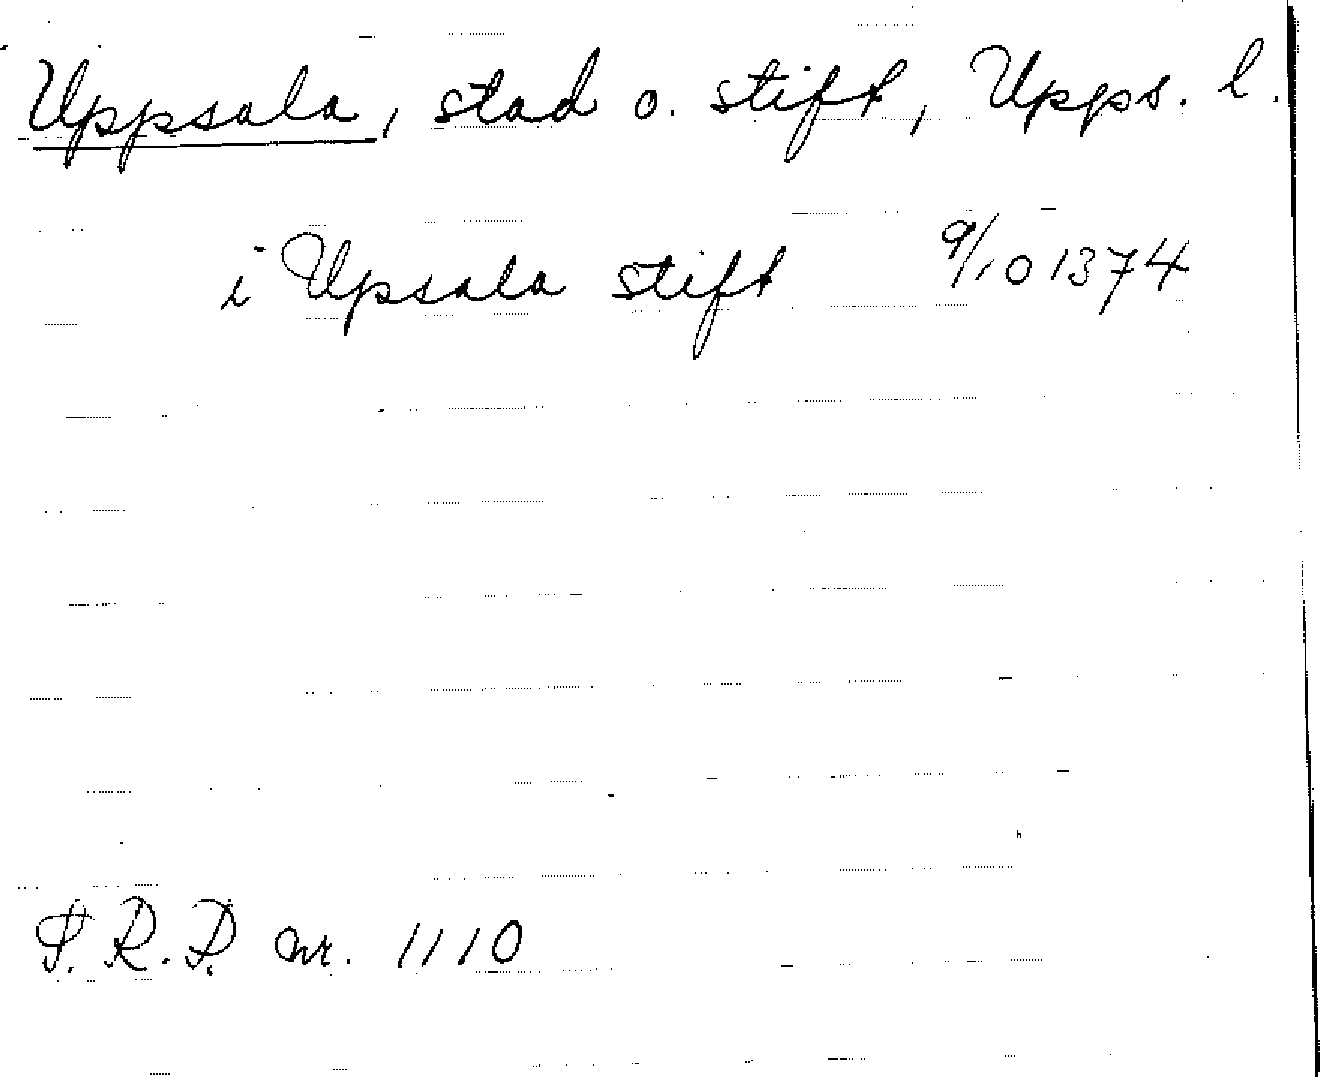 Uppsala, stad o. stift, Upps. l.
i Upsala stift 9/10 1374
S.R.P. nr. 1110